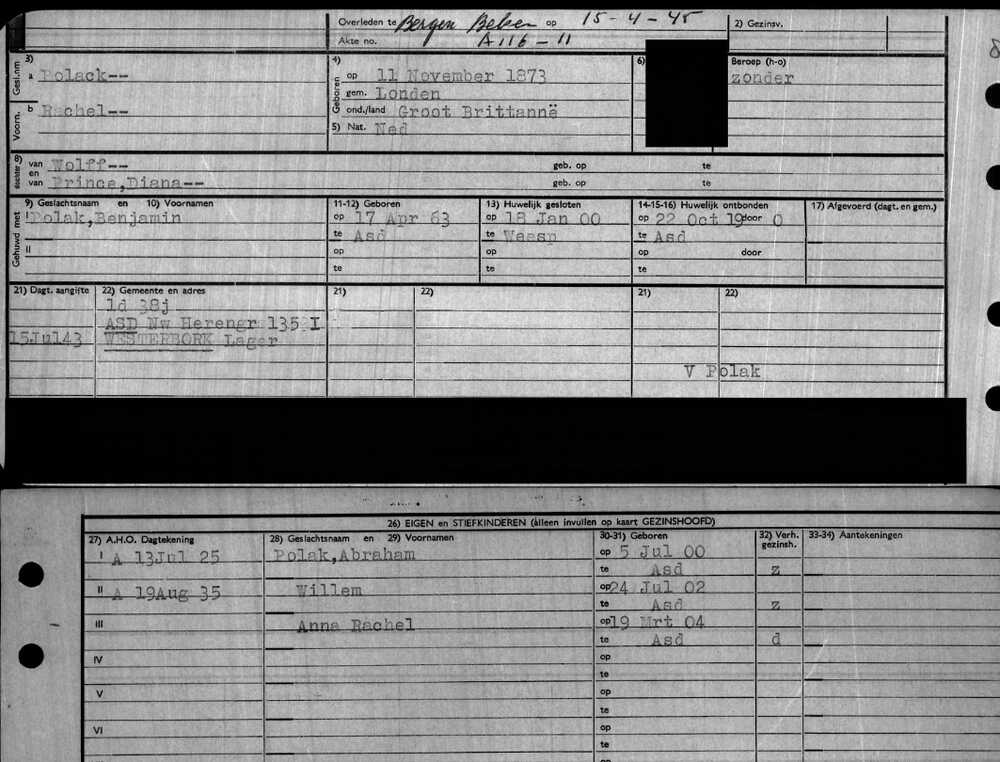 Overleden te Bergen Belsen op 15-4-45
2) Gezinsv.
Akte no. A116-11
3) Gesl.nm a Polack--
4) Geboren op 11 November 1873
6)
Beroep (h-o)
gem. Londen
zonder
Voorn. b Rachel--
ond./land Groot Brittannë
5) Nat. Ned
8) dochter van Wolff--
geb. op te
en
van Prince,Diana--
geb. op te
9) Geslachtsnaam en 10) Voornamen
11-12) Geboren
13) Huwelijk gesloten
14-15-16) Huwelijk ontbonden
17) Afgevoerd (dagt. en gem.)
Gehuwd met
I Polak,Benjamin
op 17 Apr 63
op 18 Jan 00
op 22 Oct 19 door O
te Asd
te Weesp
te Asd
II
op
op
op door
te
te
te
21) Dagt. aangifte
22) Gemeente en adres
21)
22)
21)
22)
ld 38j
ASD Nw Herengr 135 I
15Jul43 WESTERBORK Lager
V Polak
26) EIGEN en STIEFKINDEREN (alleen invullen op kaart GEZINSHOOFD)
27) A.H.O. Dagtekening
28) Geslachtsnaam en 29) Voornamen
30-31) Geboren
32) Verh. gezinsh.
33-34) Aantekeningen
I A 13Jul 25 Polak,Abraham op 5 Jul 00
te Asd z
II A 19Aug 35 Willem op 24 Jul 02
te Asd z
III Anna Rachel op 19 Mrt 04
te Asd d
IV op
te
V op
te
VI op
te
op